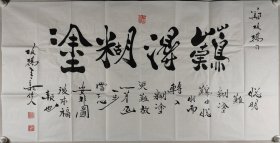 難得糊塗
聰明
難
糊塗
難由聰
明而
轉入
糊塗
更難放
一着退
一步
當心
安非圖
後來福
報也